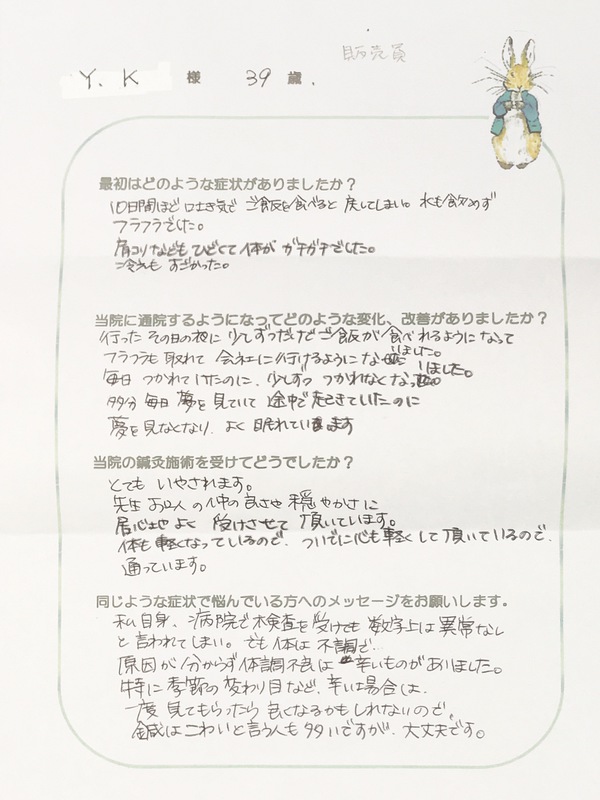 販売員
Y. K 様 39 歳.
最初はどのような症状がありましたか？
10日間ほど吐き気で ご飯を食べると 戻してしまい。水も飲めず
フラフラでした。
肩コリなどもひどくて体がガチガチでした。
冷えもすごかった。
当院に通院するようになってどのような変化、改善がありましたか？
行ったその日の夜に少しずつだけどご飯が食べれるようになって
フラフラも取れて会社に行けるようになりました。
毎日つかれていたのに、少しずつつかれなくなりました。
多分毎日夢を見ていて途中で起きていたのに
夢を見なくなり、よく眠れています
当院の鍼灸施術を受けてどうでしたか？
とてもいやされます。
先生お2人の仲の良さや穏やかさに
居心地よく受けさせて頂いています。
体も軽くなっているので、ついでに心も軽くして頂いているので、
通っています。
同じような症状で悩んでいる方へのメッセージをお願いします。
私自身、病院で検査を受けても数字上は異常なし
と言われてしまい。でも体は不調で…
原因が分からず体調不良は辛いものがありました。
特に季節の変わり目など、辛い場合は、
一度見てもらったら良くなるかもしれないので、
鍼はこわいと言う人も多いですが、大丈夫です。